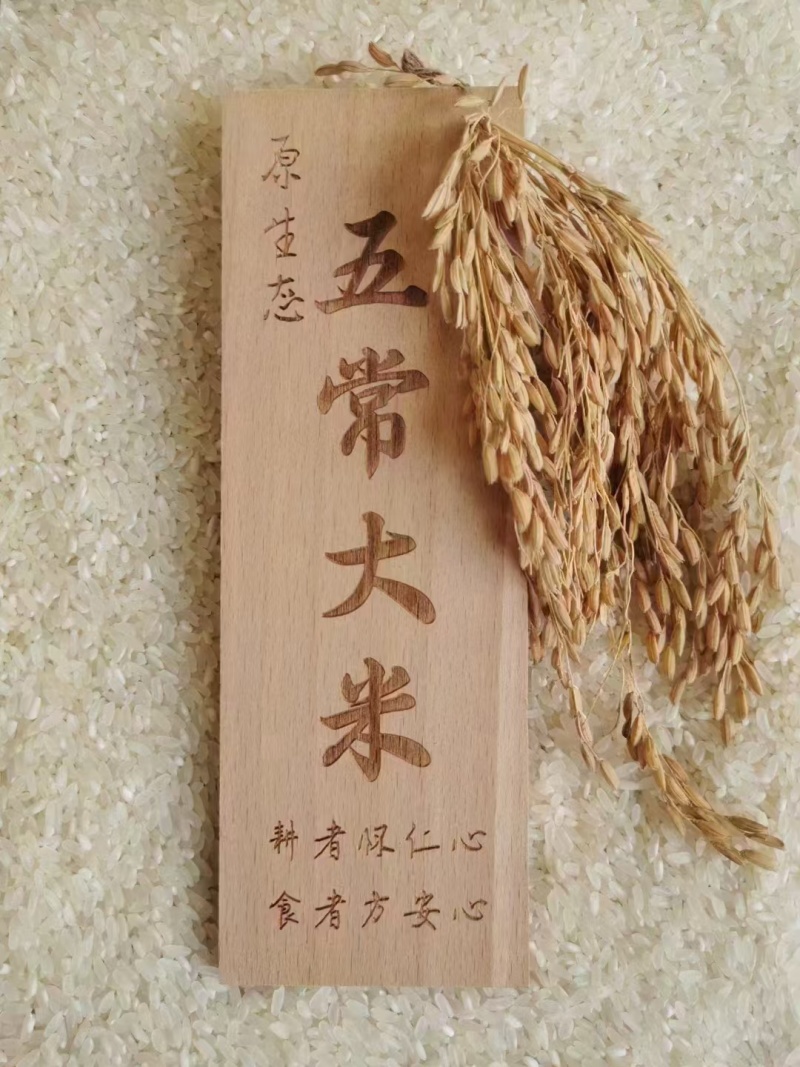 原生态
五常大米
耕者怀仁心
食者方安心